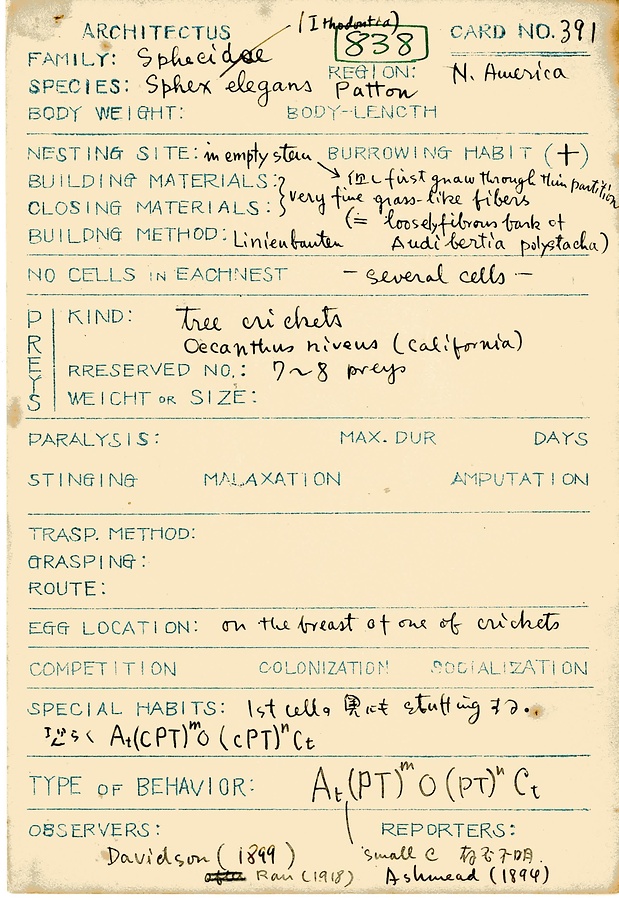 ARCHITECTUS (Isodontia) CARD NO. 391
838
FAMILY: Sphecidae
REGION: N. America
SPECIES: Sphex elegans Patton
BODY WEIGHT: BODY-LENGTH
NESTING SITE: in empty stem BURROWING HABIT (+)
但し first gnaw through thin partition
BUILDING MATERIALS:
CLOSING MATERIALS: very fine grass-like fibers
(= loosely fibrous bark of
BUILDNG METHOD: Linienbauten Audibertia polystacha)
NO CELLS IN EACHNEST - several cells -
PREYS
KIND: tree crickets
Oecanthus niveus (California)
RRESERVED NO.: 7~8 preys
WEIGHT OR SIZE:
PARALYSIS: MAX. DUR DAYS
STINGING MALAXATION AMPUTATION
TRASP. METHOD:
GRASPING:
ROUTE:
EGG LOCATION: on the breast of one of crickets
COMPETITION COLONIZATION SOCIALIZATION
SPECIAL HABITS: 1st cellの奥にも stuffing する.
At(CPT)ᵐO(CPT)ⁿCt
TYPE OF BEHAVIOR: At(PT)ᵐO(PT)ⁿCt
OBSERVERS: REPORTERS:
Davidson (1899) small C 存否不明.
Rau (1918) Ashmead (1894)